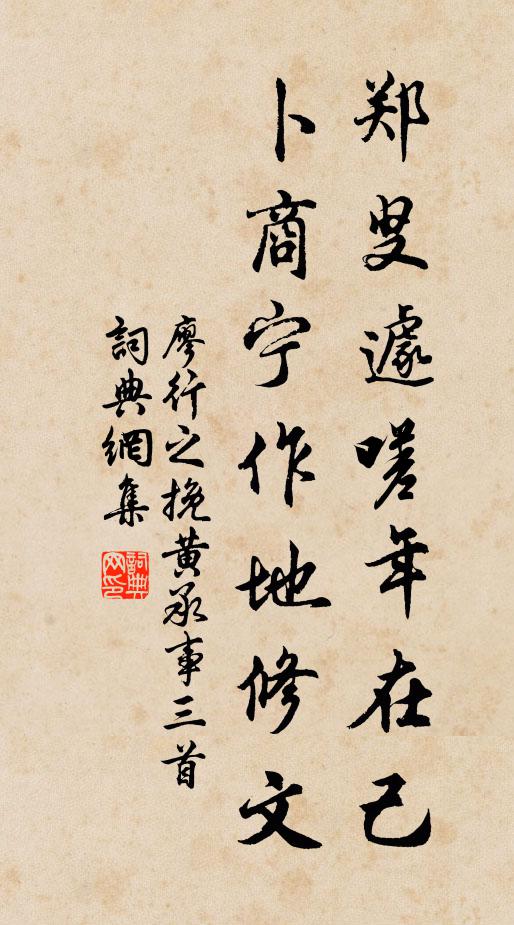 郑叟遽嗟年在己
卜商宁作地修文
廖行之挽黄承事三首
詞典網集
詞典网印